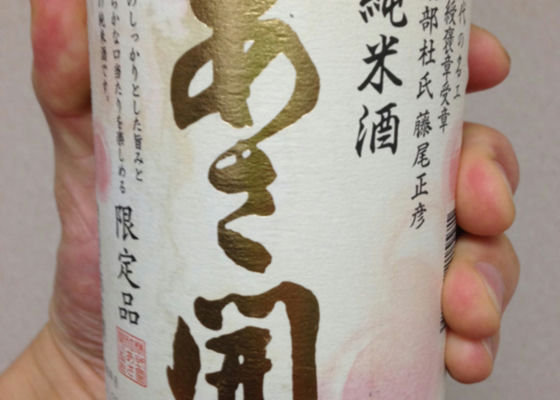 代の名工
綬褒章受章
部杜氏 藤尾正彦
純米酒
あさ開
のしっかりとした旨みと
らかな口当たりを楽しめる
の純米酒です。
限定品